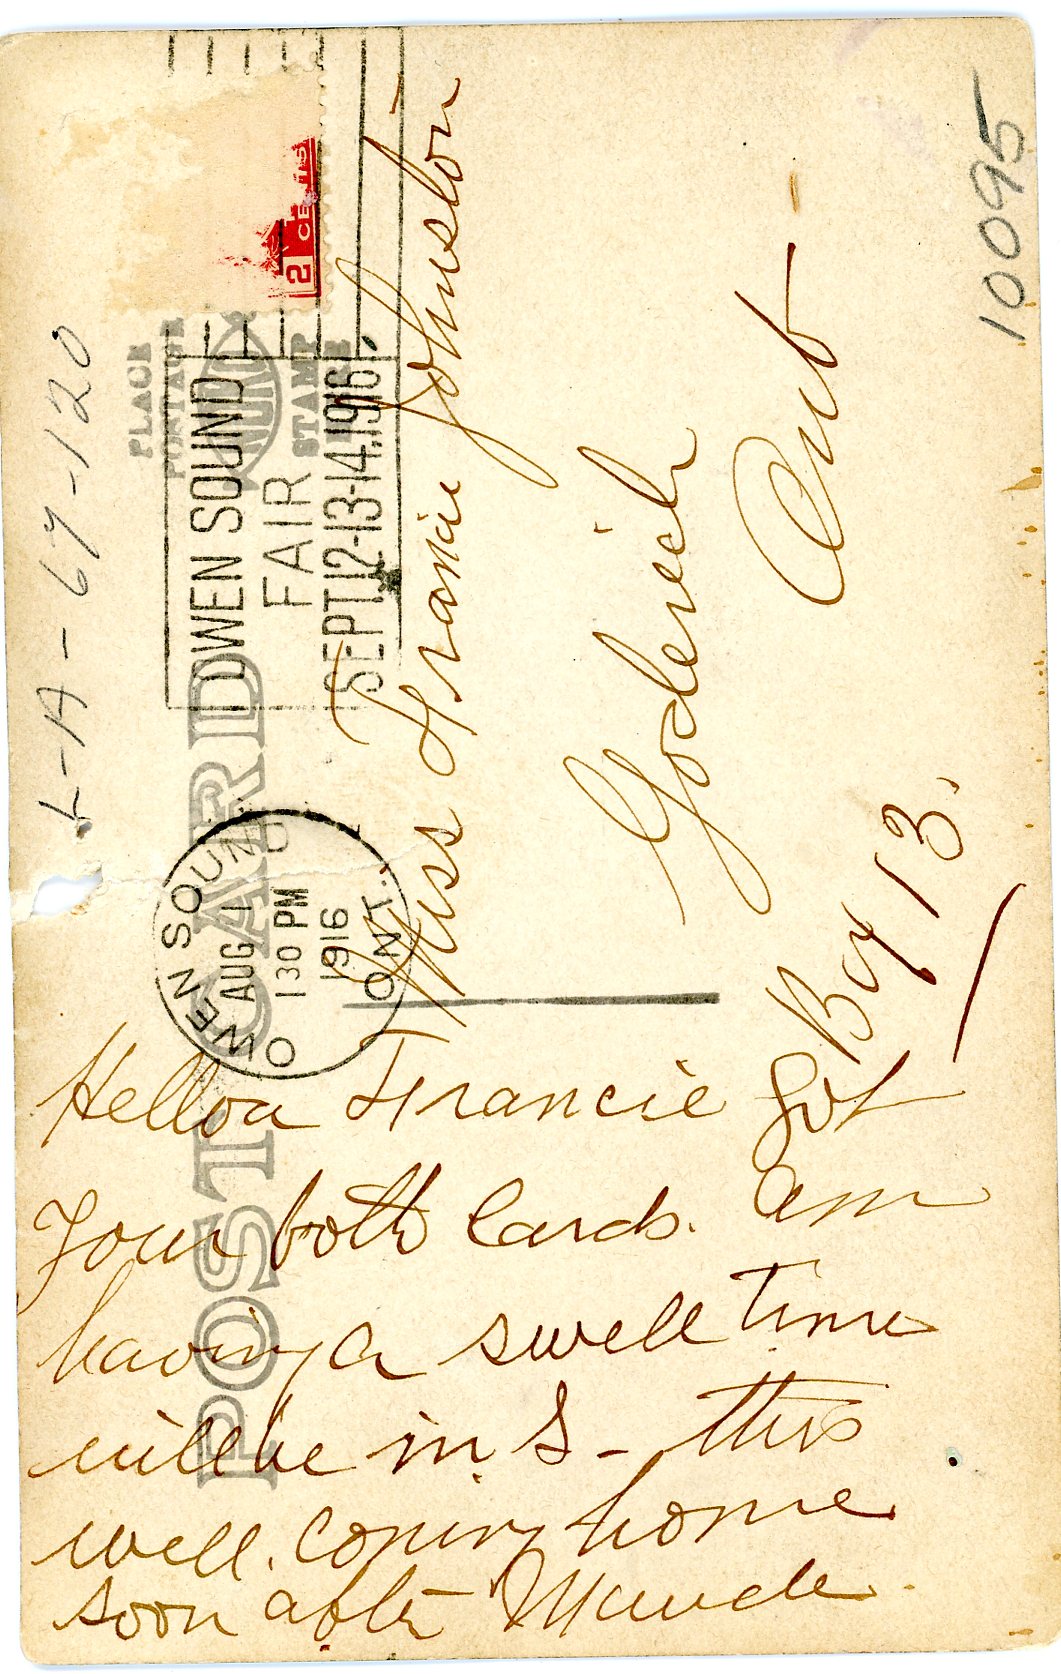 10095
L-A-67-120
POST CARD
PLACE
POSTAGE
STAMP
HERE
2 CENTS
OWEN SOUND
FAIR
SEPT.12-13-14,1916
OWEN SOUND
AUG 1
1 30 PM
1916
ONT.
Miss Francie Johnston
Goderich
Ont
Box 13.
Helloa Francie got
Your both Cards. am
having a swell time
will be in S - this
well. coming home
soon after Maude